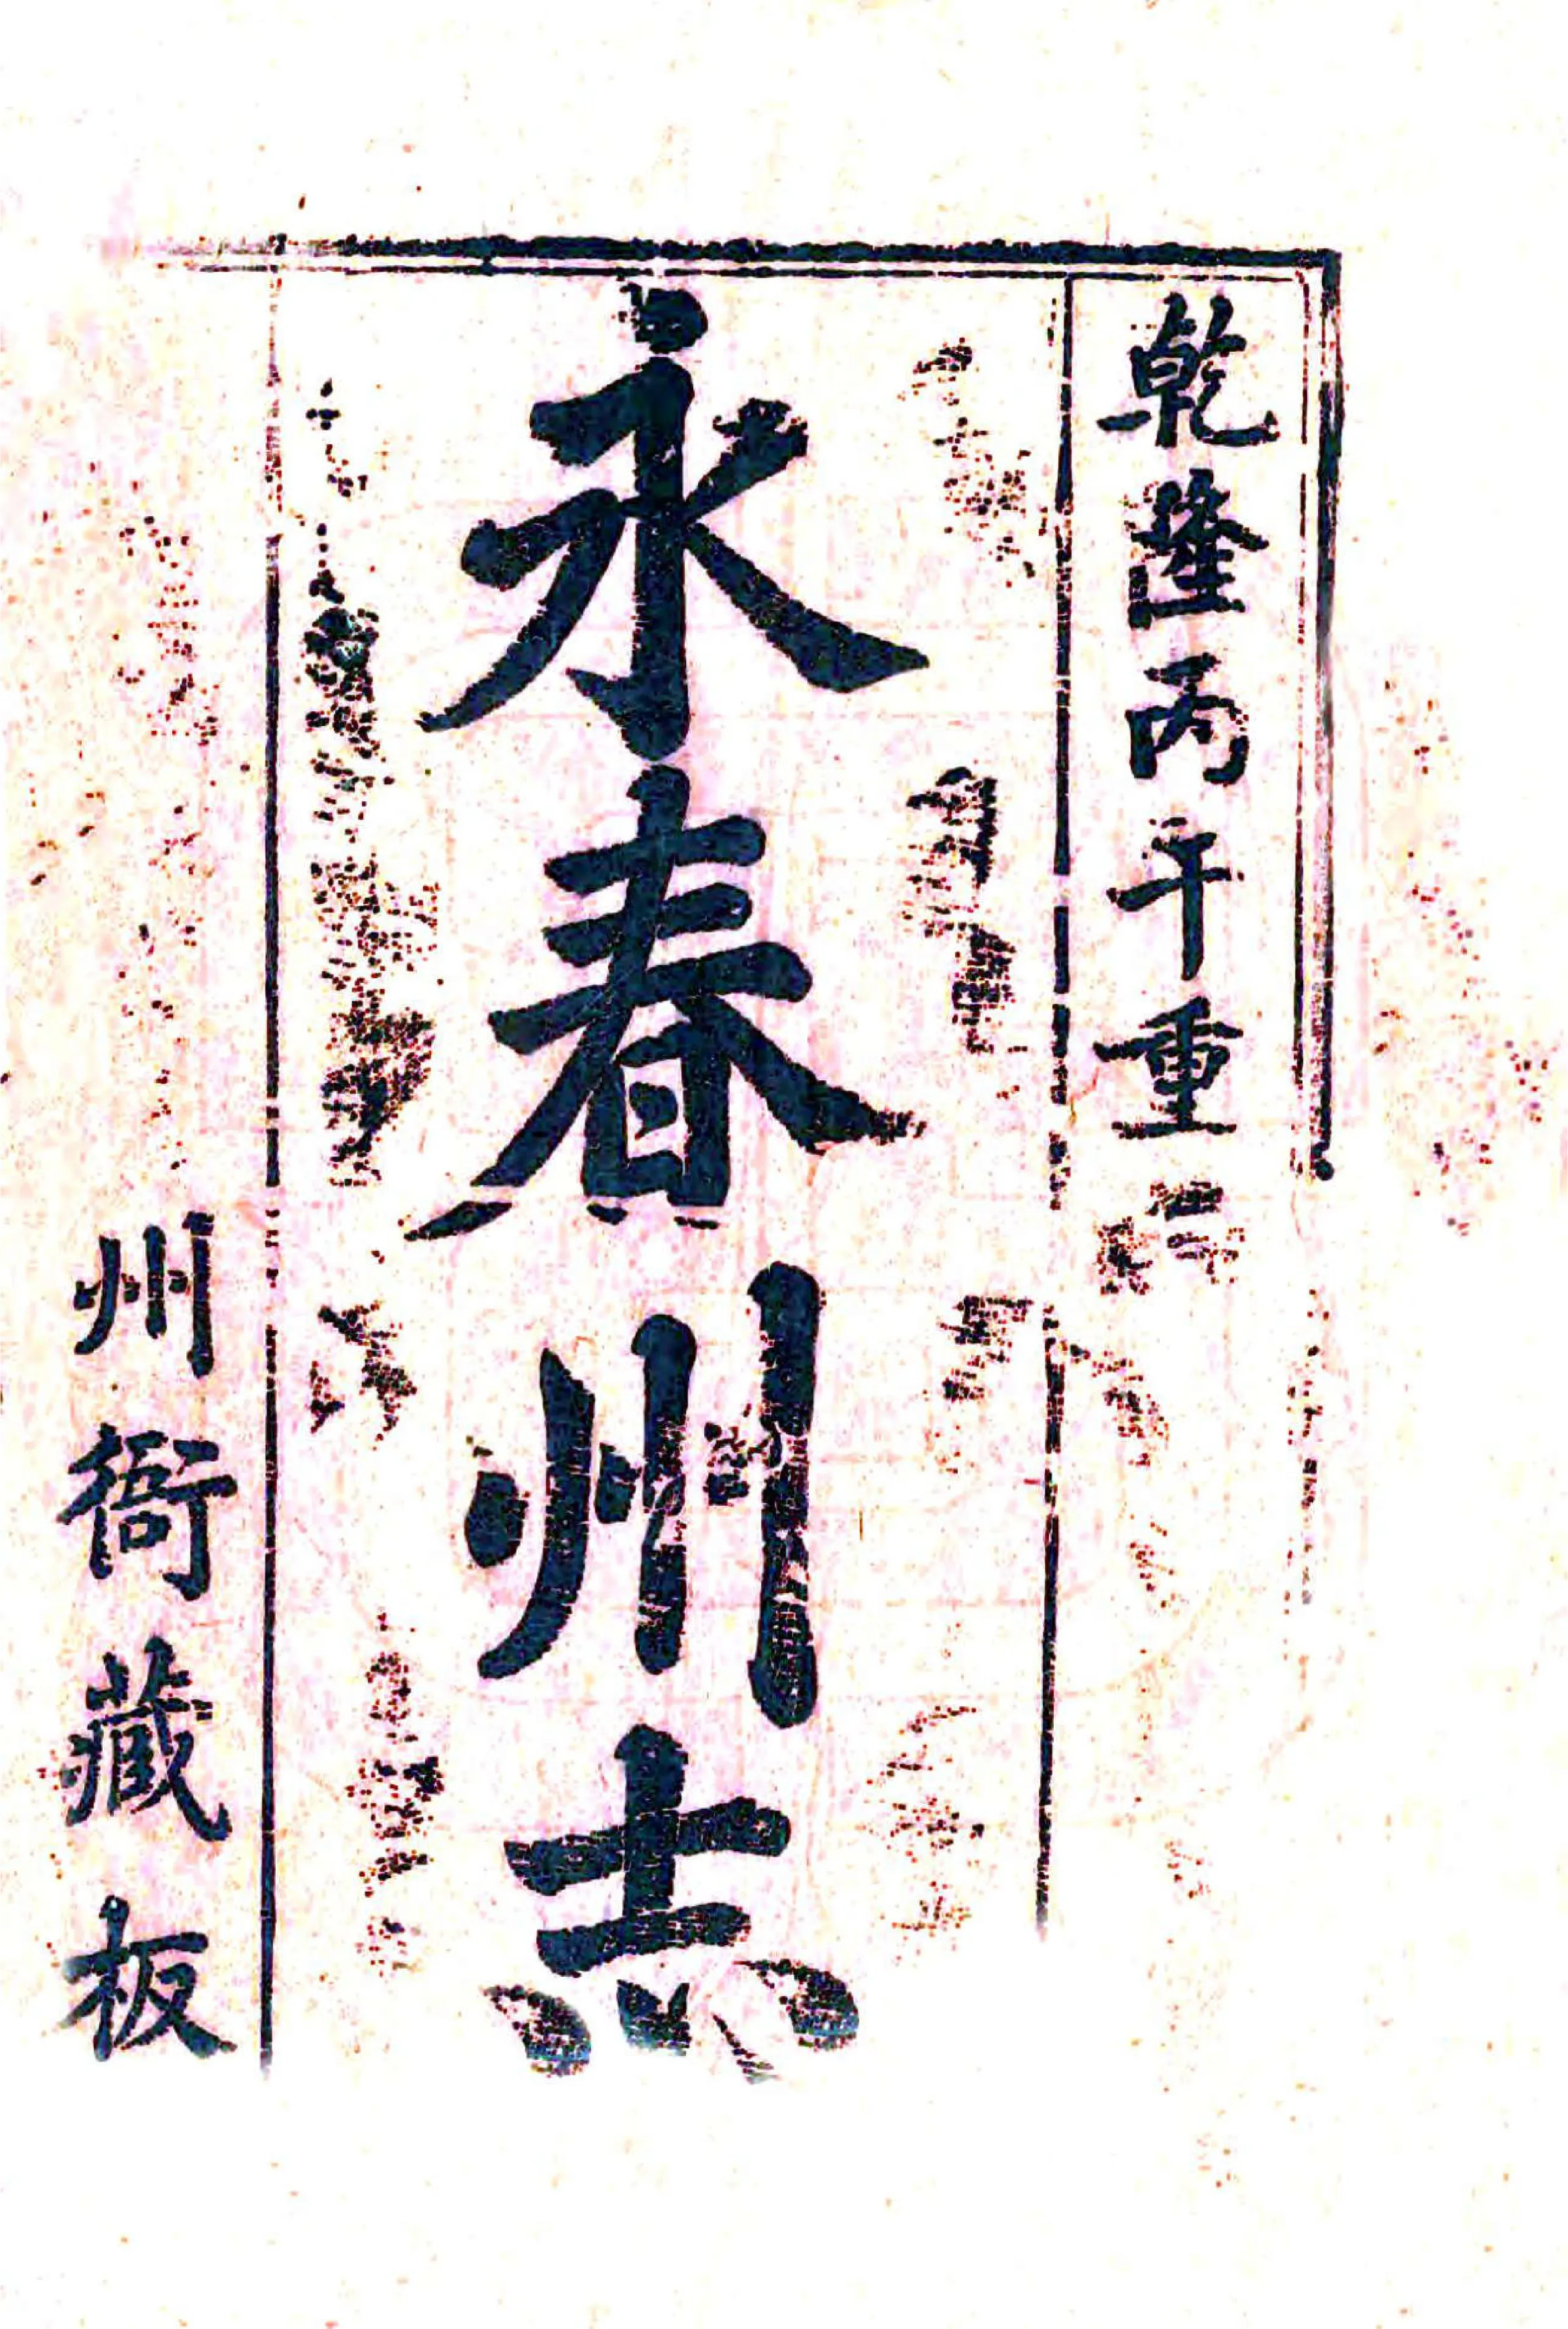 乾隆丙午重
永春州志
州衙藏板